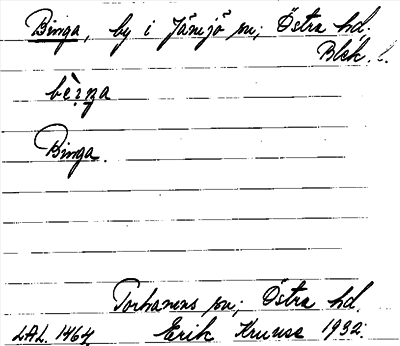 Binga, by i Jämjö sn; Östra hd.
Blek. l.
Binga.
Torhamns sn; Östra hd.
LAL. 1464. Erik Kruuse 1932.